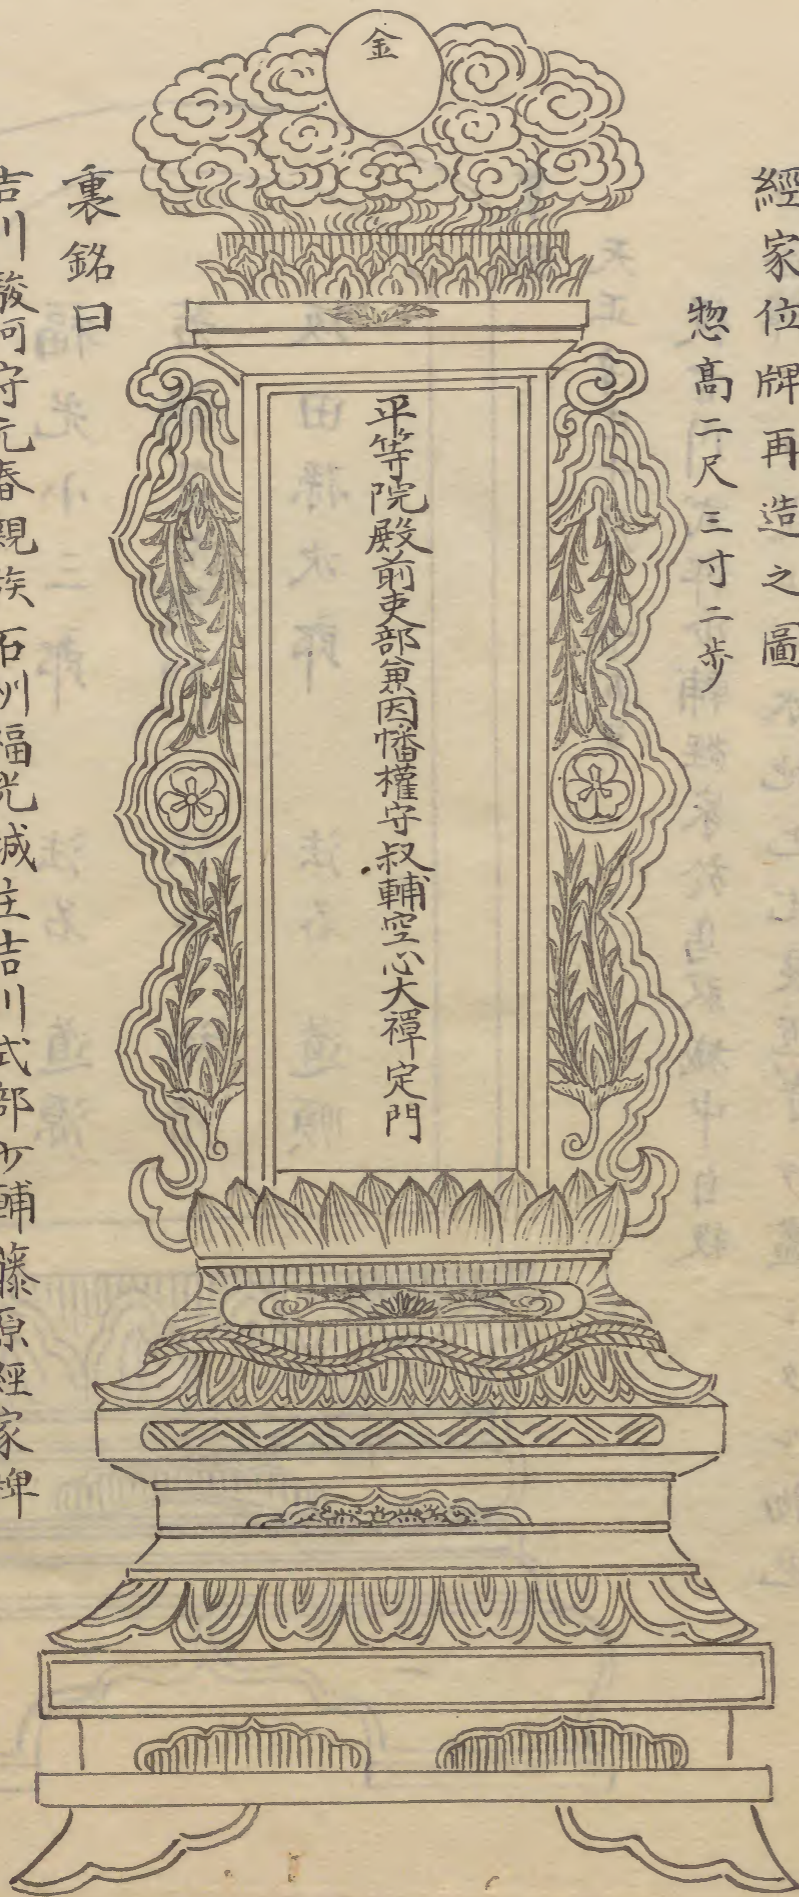 經家位牌再造之圖
惣高二尺三寸二歩
金
平等院殿前吏部兼因幡權守叔輔空心大禪定門
裏銘曰
吉川駿河守元春親族石州福光城主吉川式部少輔藤原經家牌